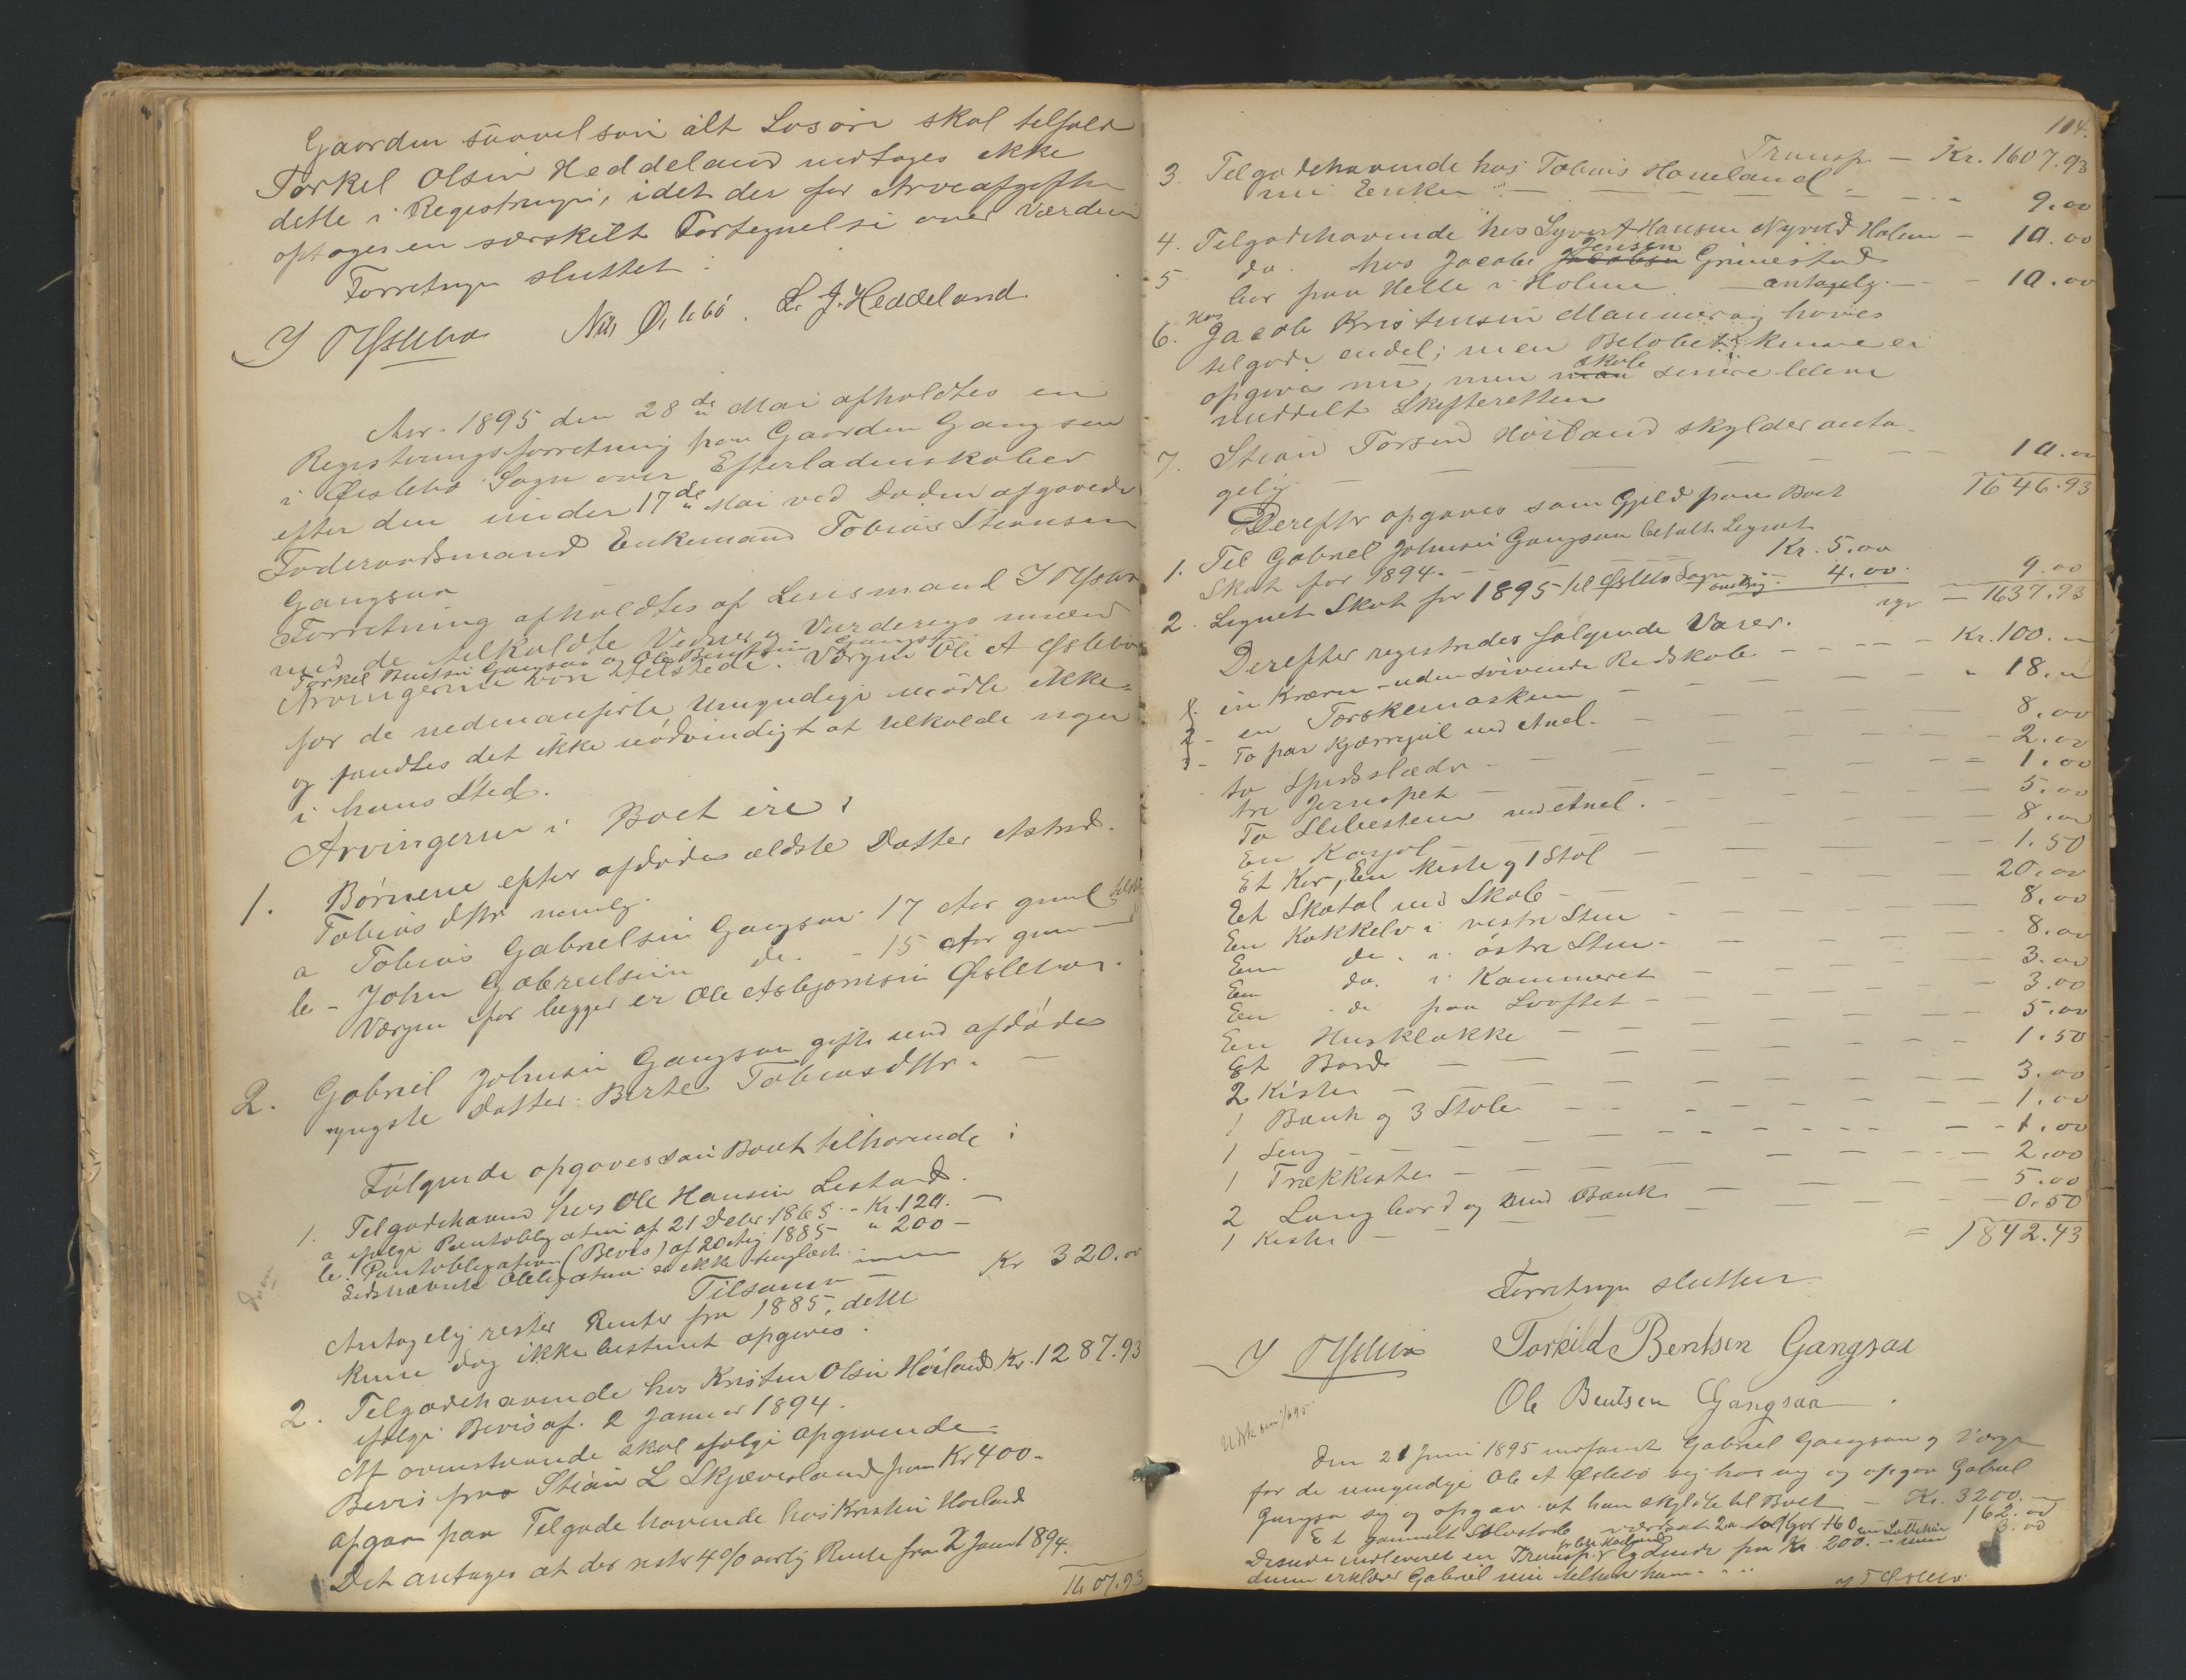 Gaarden saavel som alt Løsøre skal tilfalde
Torkel Olsen Heddeland medtages ikke
dette i Registringen, idet der for Arveafgiften
optages en særskilt Fortegnelse over Værdien
Forretnigen sluttet:
T Øslebø Nils Øslebö. L. J. Heddeland.
Aar 1895 den 28de Mai afholdtes en
Registeringsforretning paa Gaarden Gangsaa
i Øislebø Sogn over Efterladenskaber
efter den under 17de Mai ved Döden afgaaede
Foderaadsmand Enkemand Tobias Steansen
Gangsaa
Forretning afholdtes af Lensmand T Øslebø
med de tilkaldte Vidner og Vurderings mænd
Torkel Bentsen Gangsaa og Ole Bentsen Gangsaa
Arvingerne vare tilstede. Værgen Ole A Øslebø
for de nedenanførte Umyndige mödte ikke
og fandtes det ikke nödvendigt at tilkalde nogen
i hans Sted.
Arvingerne i Boet ere:
1. Börnene efter afdödes ældste Datter Astrid
Tobiasdttr nemlig.
a Tobias Gabrielsen Gangsaa 17 Aar gml
b - John Gabrielsen do. - 15 Aar gml
Værgen for begge er Ole Asbjornsen Øslebø.
2. Gabriel Johnsen Gangsaa gift med afdödes
yngste Datter Berte Tobiasdttr. -
Fölgende opgaves som Boet tilhorende:
1. Tilgodehavend hos Ole Hansen Lestad.
a ifølge Pantobligation af 21 Decbr. 1865 - Kr. 120. -
b. Pantobligation (Bevis) af 20 Aug 1885 - " 200 -
Sidstnævnte Obligation er ikke tinglæst
Tilsamn - Kr 320.00
Antagelig rester Renter fra 1885, dette
kunne dog ikke bestemt opgives.
2. Tilgodehavende hos Kristen Olsen Høiland Kr. 1287.93
ifølge Bevis af. 2 Januar 1894.
Af ovenstaaende skal ifølge opgivende
Bevis fra Stean L Skjæveland paa Kr 400 -
afgaa paa Tilgode havende hos Kristen Høiland
Det antages at der rester 4% aarlig Rente fra 2 Janr 1894.
1607.93
104.
Transp - Kr. 1607.93
3. Tilgodehavende hos Tobias Haueland
nu Enken - 9.00
4. Tilgodehavende hos Syvert Hansen Nyvold Holum - 10.00
5 do. hos Jacob Jensen Grimestad
bor paa Helle i Holum - antagelig - 10.00
6. Hos Jacob Kristensen Mannerag haves
tilgode endel; men Beløbet kunne ei
opgives nu, men skole senere blive
meddelt Skifteretten
7. Stean Torsen Høiland skylder anta-
gelig - 10.00
1646.93
Derefter opgaves som Gjeld paa Boet
1. Til Gabriel Johnsen Gangsaa betalt Lignet
Skat for 1894. - Kr. 5.00
2. Lignet Skat for 1895 til Øslebø Sogn antagelig. 4.00. 9.00
igr - 1637.93
Derefter registredes følgende Varer.
1. en Kværn - uden svivende Redskab - Kr. 100.
2 - en Tærskemaskin - " 18.
3 - To par Kjærrejul med Axel. - 8.00
to Spidsslæder - 2.00
tre Jernspet - 1.00
To Slibestene med Axel. - 5.00
En Karjol - 8.00
Et Kar, En kiste og 1 Stol - 1.50
Et Skatol med Skab - 20.00
En Kakkelov i vestre Stue - 8.00
En do. i östre Stue - 8.00
En do. i Kammeret - 3.00
En - do paa Looftet - 3.00
En Husklokke - 5.00
Et Bord - 1.50
2 Kister - 3.00
1 Bænk og 3 Stole - 1.00
1 Seng - 1.00
1 Trækkiste - 2.00
2 Langbord og med Bænk - 5.00
1 Kiste - 0.50
= 1842.43
Forretnigen sluttet
T Øslebø Torkild Bentsen Gangsaa
Ole Bentsen Gangsaa
Den 21 Juni 1895 indfandt Gabriel Gangsaa og Værge
for de umyndige Ole A Øslebø sig hos mig og opgav Gabriel
Gangsaa sig og opgav at han skyldte til Boet - Kr. 3200. -
Et gammelt Sølvstob 162.00
Desuden indleveret en Transp. lydende paa Kr. 200. - men
denne erklærer Gabriel nu tilhører ham.
T Øslebø.